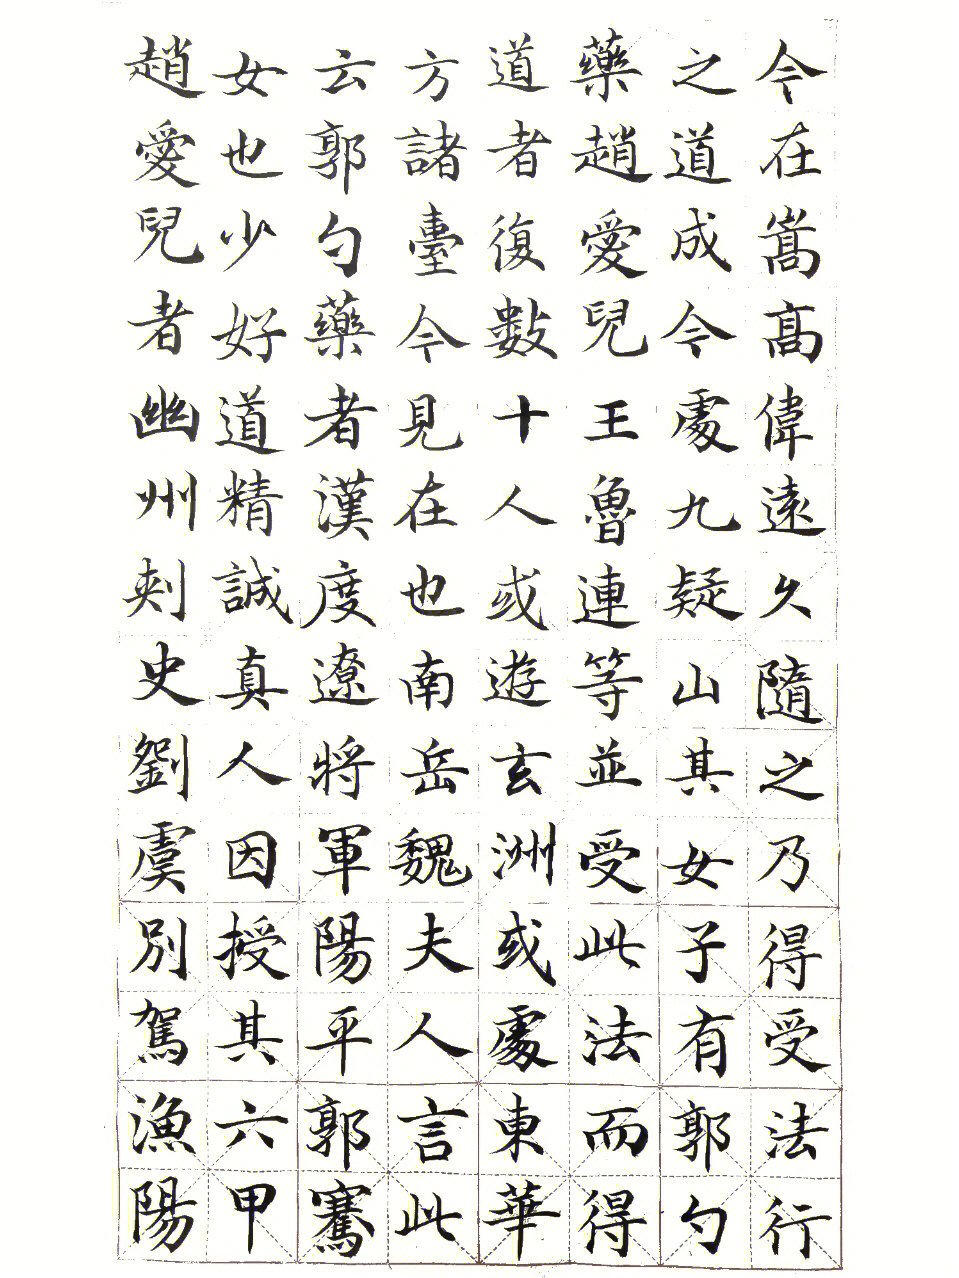 今在嵩高偉遠久隨之乃得受法行
之道成今處九疑山其女子有郭勺
藥趙愛兒王魯連等並受此法而得
道者復數十人或遊玄洲或處東華
方諸臺今見在也南岳魏夫人言此
云郭勺藥者漢度遼將軍陽平郭騫
女也少好道精誠真人因授其六甲
趙愛兒者幽州刾史劉虞別駕漁陽